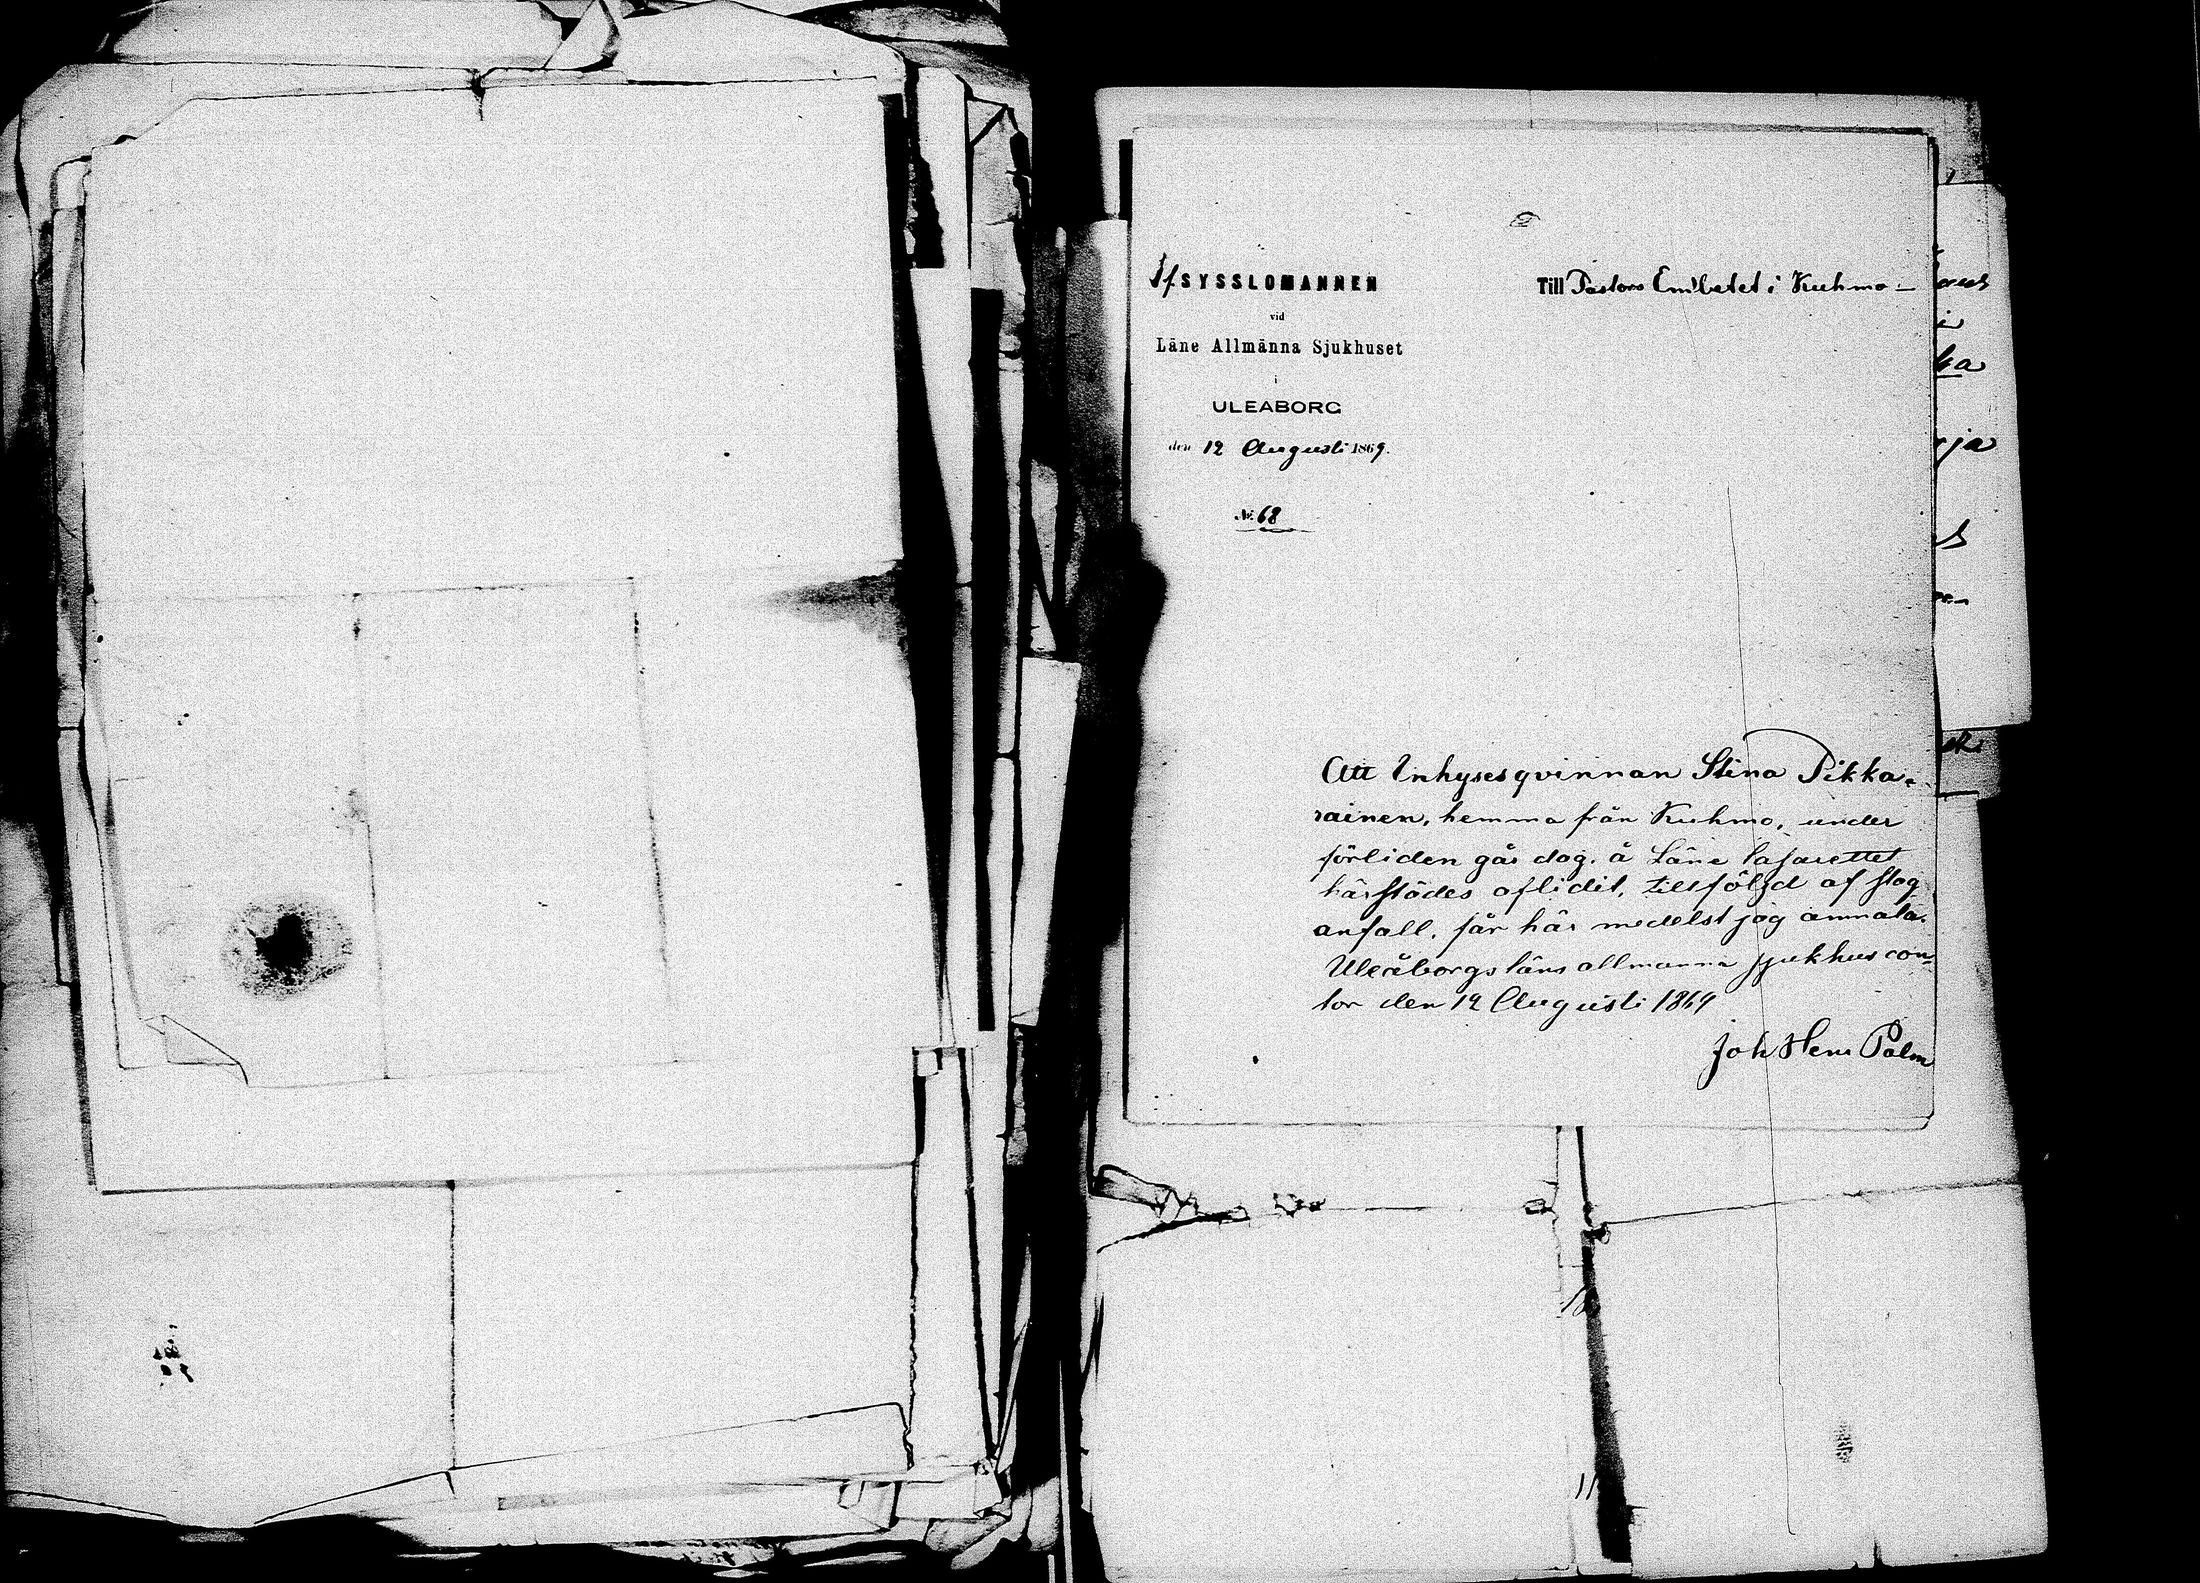 SYSSLOMANNEN
vid
Läne Allmänna Sjukhuset
i
ULEABORG
den 12 Augusti 1869.
№ 68
Till Pastors Embetet i Kuhmo
Att Inhysesqvinnan Stina Pikka-
rainen, hemma från Kuhmo, under
förliden går dag. å Läne lasarettet
härstädes aflidit, till följd af slag
anfall, får här medelst jag anmäla.
Uleåborgs läns allmänna sjukhus con-
tor den 12 Augusti 1869
Joh Henr Palm
ka
rja